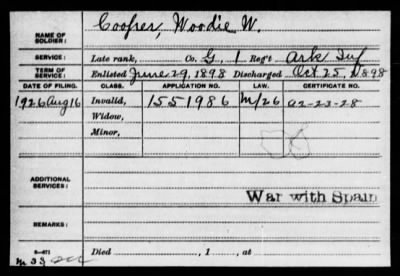 NAME OF SOLDIER: Cooper, Woodie W.
SERVICE: Late rank, Co. G, 1 Reg't Ark Inf
TERM OF SERVICE: Enlisted June 29, 1898 Discharged Oct 25, 1898
DATE OF FILING. CLASS. APPLICATION NO. LAW. CERTIFICATE NO.
1926 Aug 16 Invalid, 1551986 M/26 a2-23-28
Widow,
Minor,
ADDITIONAL SERVICES:
War with Spain
REMARKS:
Died , 1 , at